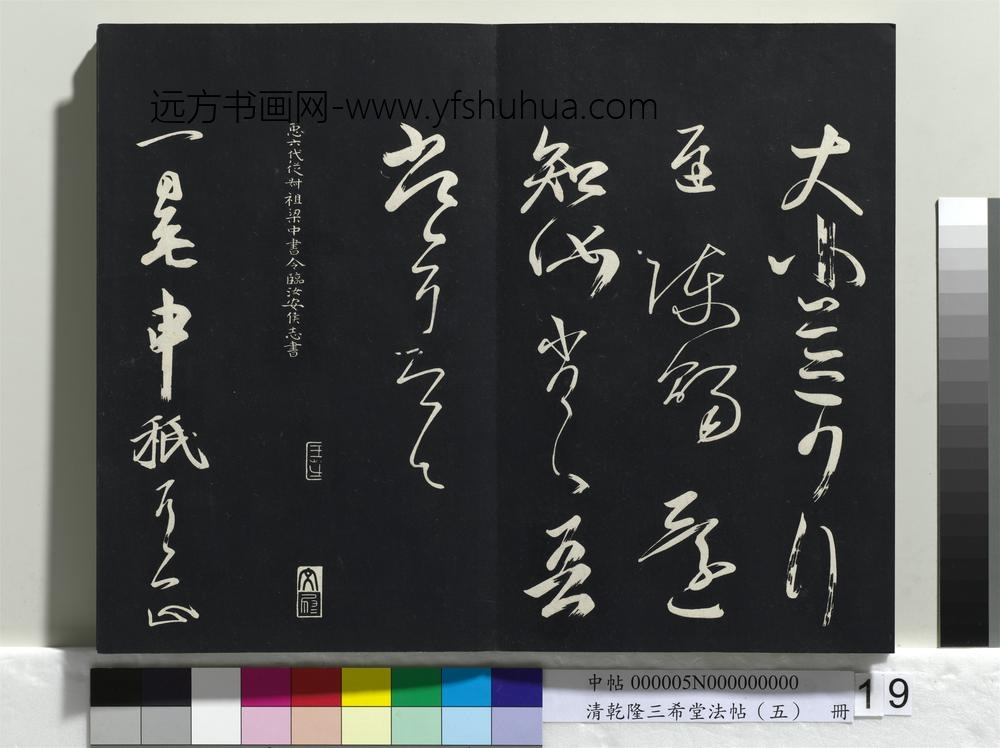 远方书画网-www.yfshuhua.com
大小並可行
遲陳賜還
知汝劣劣吾
常耳
六代從叔祖梁中書令臨汝安侯志書
一日無申秪
中帖 000005N000000000
清乾隆三希堂法帖（五） 冊
19